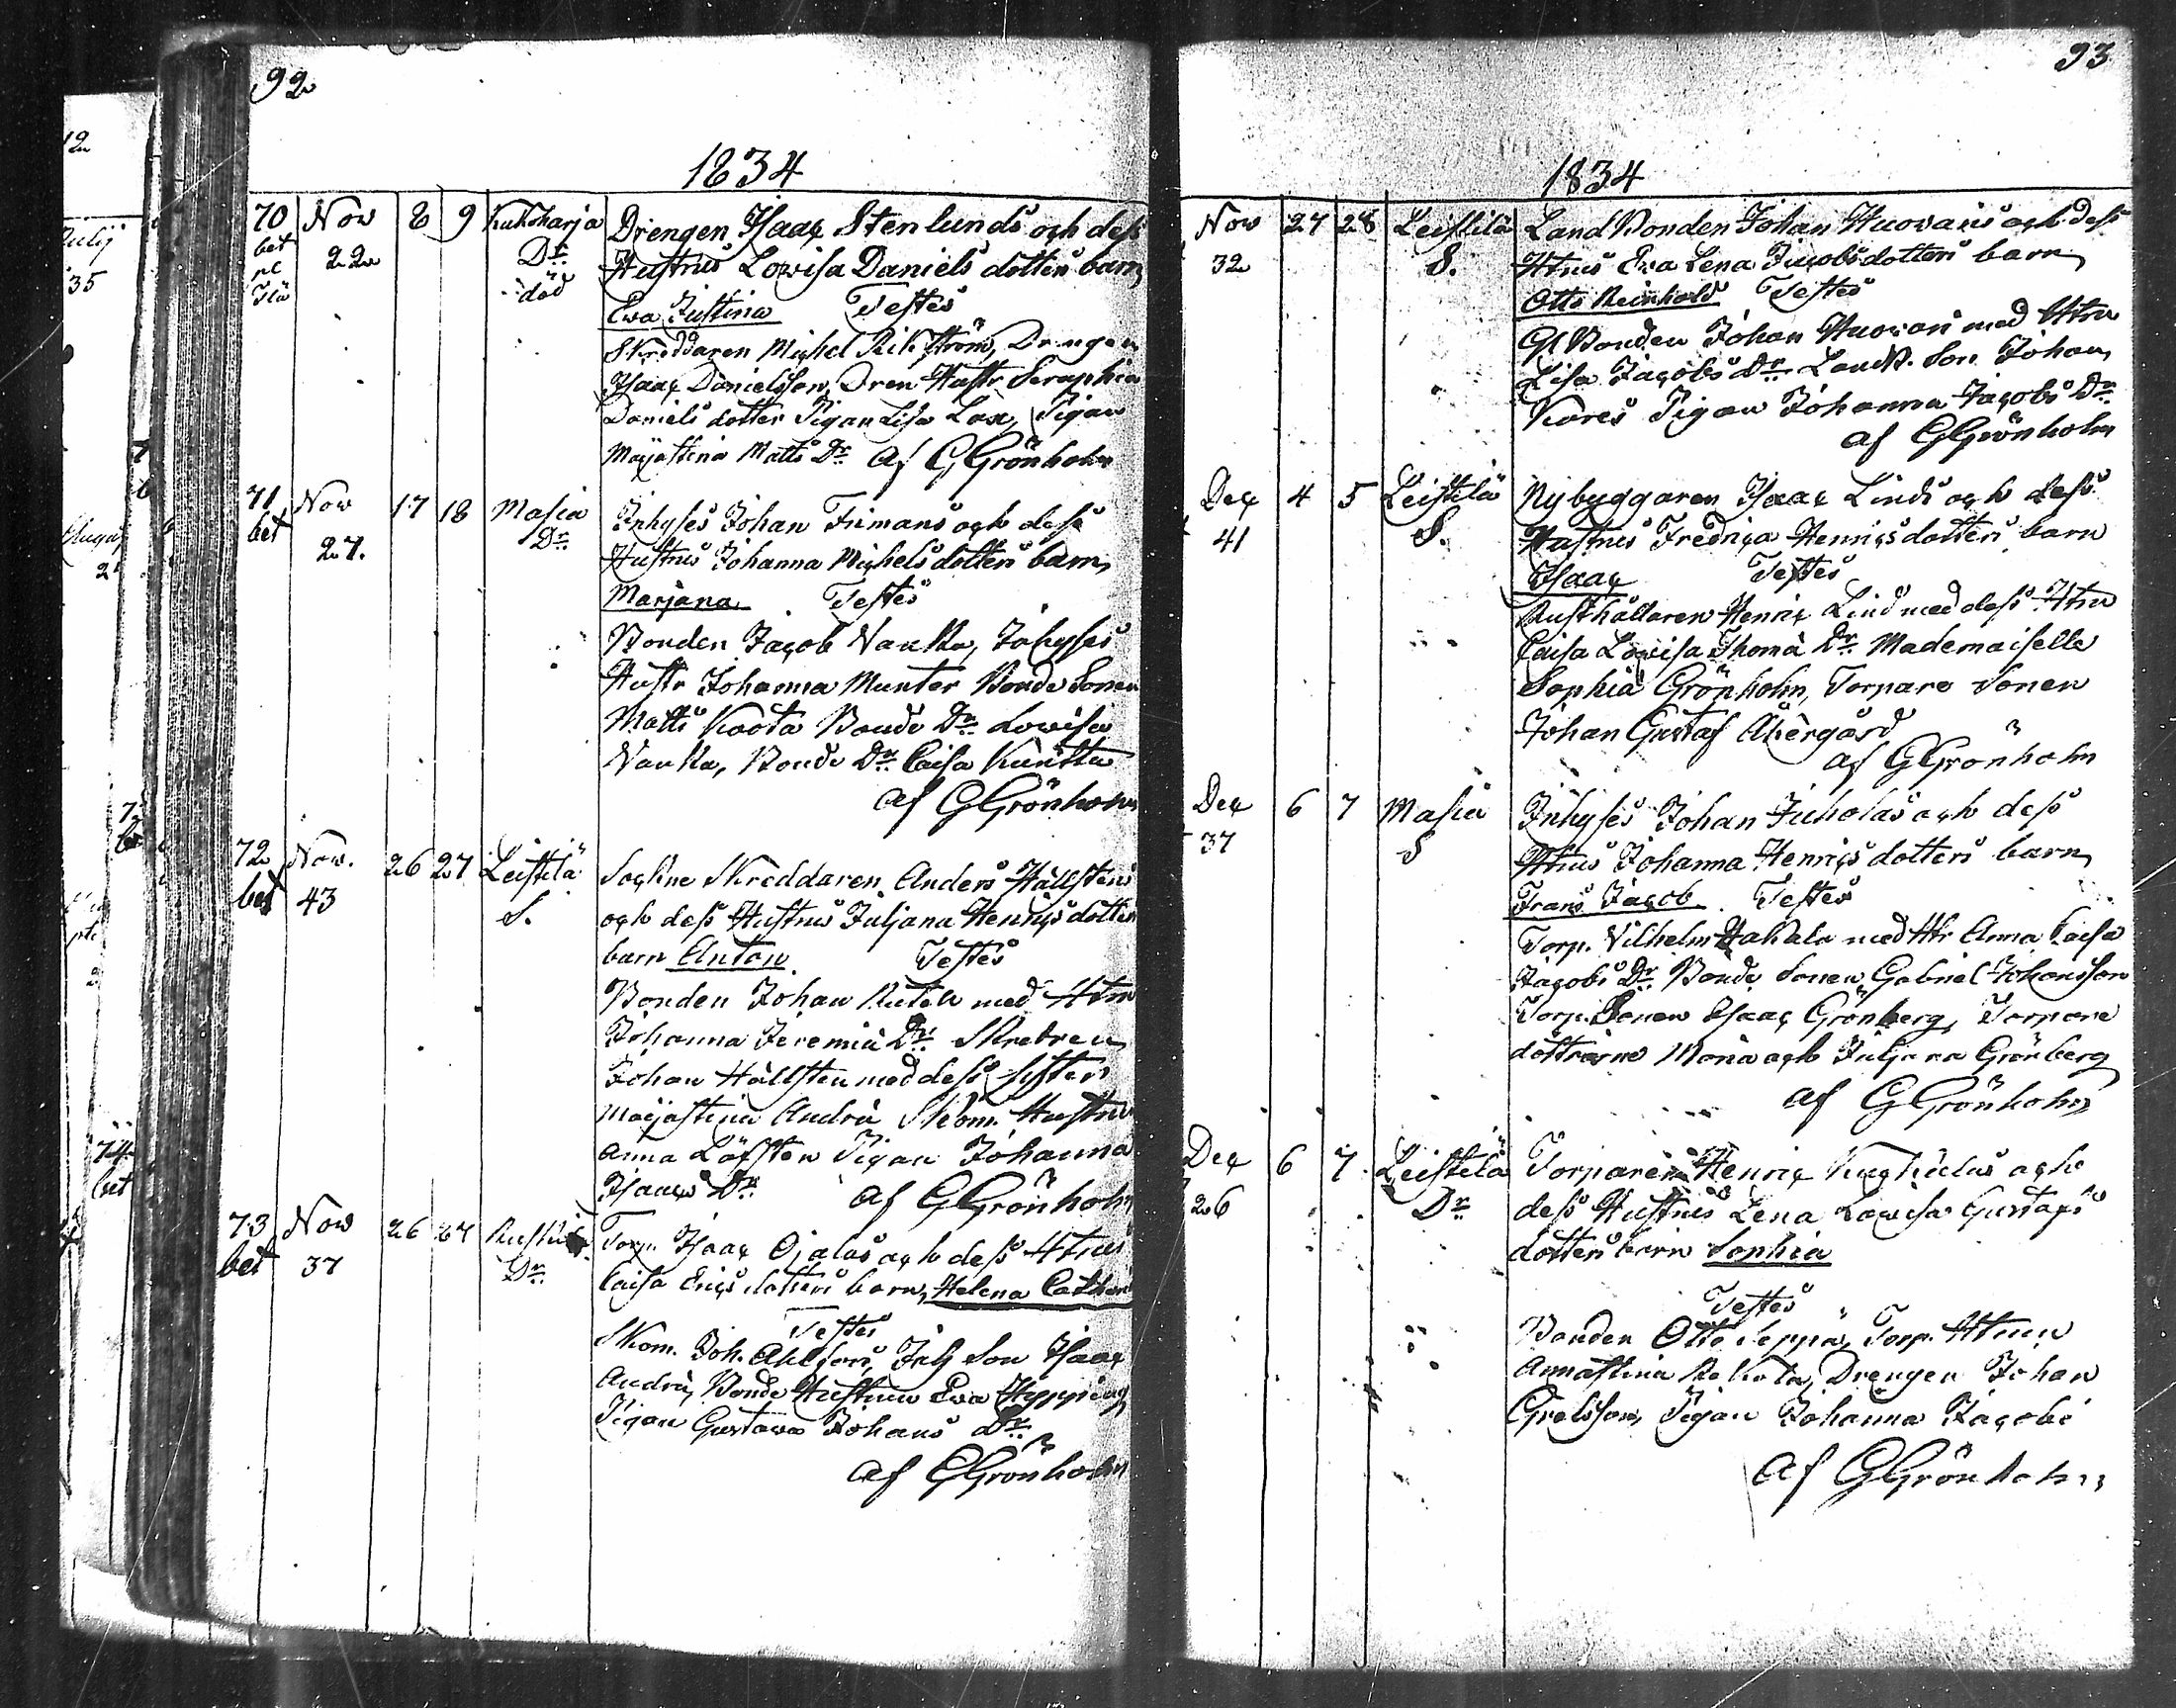 92
1834
70 Nov 8 9 Kukoharja Drengen Isaac Stenlunds och dess
bet 22 Dr. Hustrus Lovisa Daniels dotters barn
död Eva Justina Testes
Skreddaren Michel Rikström, Drengen
Isaac Danielsson, Dren Hustr Seraphia
Daniels dotter Pigan Lisa Lax, Pigan
Majastina Matts Dr. af GGrönholm
71 Nov 17 18 Masia Inhyses Johan Frimans och dess
bet 27. Dr. Hustrus Johanna Michels dotters barn
Marjana Testes
Bonden Jacob Naukka, Inhyses
Hustr Johanna Munter Bonde Sonen
Matts Koota Bonde Dr. Lovisa
Naukka, Bonde Dr. Caisa
af GGrönholm
72 Nov. 26 27 Leistilä Sockne Skreddaren Anders Hällstens
bet 43 S. och dess Hustrus Juljana Henrics dotters
barn Anton Testes
Bonden Johan med Htru
Johanna Jeremiä Dr. Skredren
Johan Hällsten med dess syster
Majastina Andrä Skom. Hustru
Anna Löfsten Pigan Johanna
Isaacs Dr. af GGrönholm
73 Nov 26 27 Torp. Isaac Ojalas och dess Htrus
bet 37 Dr. Caisa Erics dotters barn, Helena Cathar
Testes
Skom. Joh. Ahlfors, Inh Son Isaac
Andrä, Bonde Hustrun Eva Hypping
Pigan Gustava Johans Dr.
af GGrönholm
93
1834
Nov 27 28 Leistilä Land Bonden Johan Huovaris och dess
32 S. Htrus Eva Lena Jacobsdotters barn
Otto Reinhold Testes
Gl Bonden Johan Huovari med Htru
Lisa Jacobs Dr. Landb. Son Johan
Kores Pigan Johanna Jacobs Dr.
af GGrönholm
Dec 4 5 Leistilä Nybyggaren Isaac Linds och dess
41 S. Hustrus Fredrica Henricsdotters barn
Isaac Testes
Rusthållaren Henric Lind med dess Htru
Caisa Lovisa Thomä Dr. Mademaiselle
Sophia Grönholm, Torpare Sonen
Johan Gustaf Åkergård
af GGrönholm
Dec 6 7 Masia Inhyses Johan Juholas och dess
37 S Htrus Johanna Henrics dotters barn
Frans Jacob Testes
Torp. Vilhelm Hakala med Htr Anna Caisa
Jacobs Dr. Bonde Sonen Gabriel Johansson
Torp. Sonen Isaac Grönberg, Torpare
döttrarne Maria och Juljana Grönberg
af GGrönholm
Dec 6 7 Leistilä Torparen Henric Kuckulas och
26 Dr. dess Hustrus Lena Lovisa Gustafs
dotters barn Sophia
Testes
Bonden Otto Seppä, Torp. Htrun
Annastina Rekola, Drengen Johan
Grelsson, Pigan Johanna Jacobs
af GGrönholm